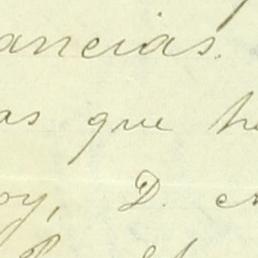 ancias.
as que h
oy, D. A